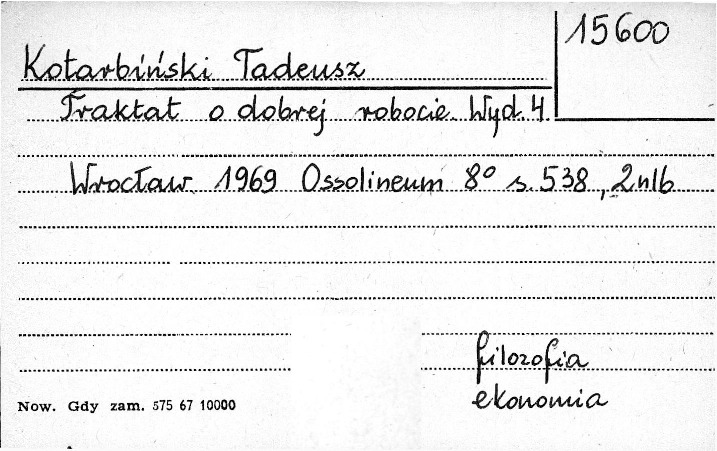 15600
Kotarbiński Tadeusz
Traktat o dobrej robocie. Wyd. 4.
Wrocław 1969 Ossolineum 8° s. 538, 2nlb
filozofia
ekonomia
Now. Gdy zam. 575 67 10000